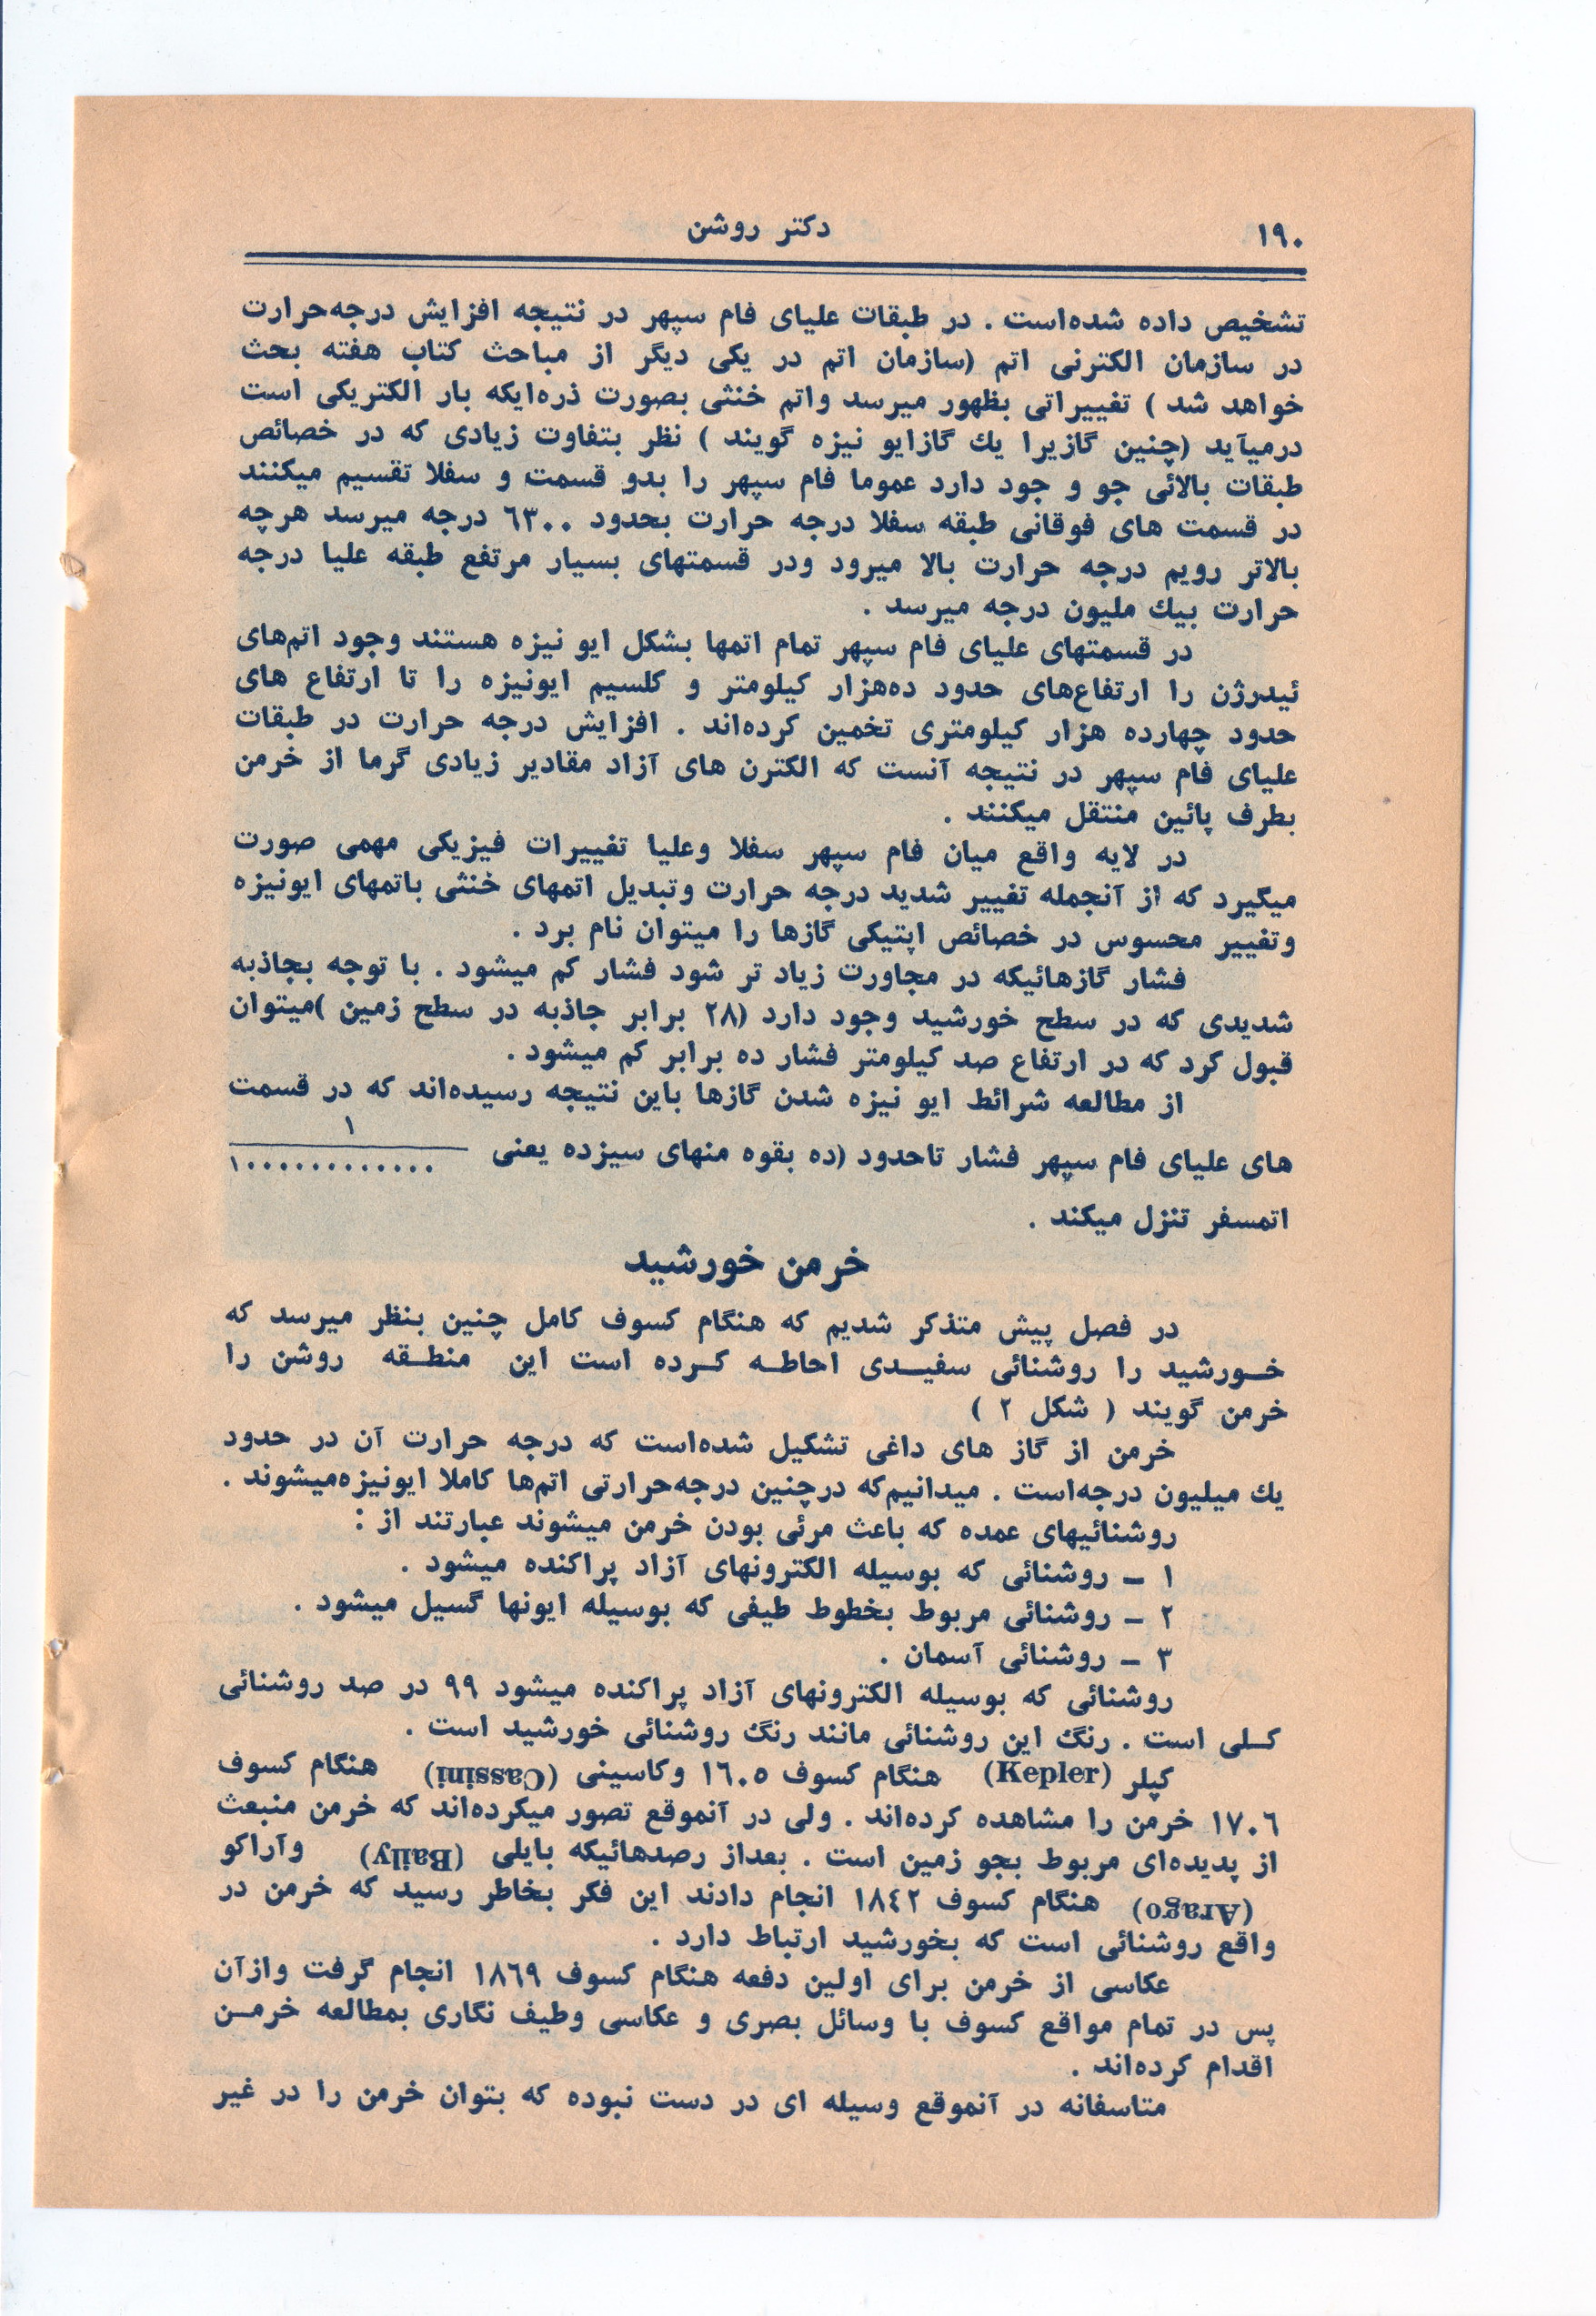 ۱۹۰
دکتر روشن
تشخیص داده شده‌است . در طبقات علیای فام سپهر در نتیجه افزایش درجه‌حرارت
در سازمان الکترنی اتم (سازمان اتم در یکی دیگر از مباحث کتاب هفته بحث
خواهد شد ) تغییراتی بظهور میرسد واتم خنثی بصورت ذره‌ایکه بار الکتریکی است
درمیآید (چنین گازیرا یك گازایو نیزه گویند ) نظر بتفاوت زیادی که در خصائص
طبقات بالائی جو و جود دارد عموما فام سپهر را بدو قسمت و سفلا تقسیم میکنند
در قسمت های فوقانی طبقه سفلا درجه حرارت بحدود ٦۳۰۰ درجه میرسد هرچه
بالاتر رویم درجه حرارت بالا میرود ودر قسمتهای بسیار مرتفع طبقه علیا درجه
حرارت بیك ملیون درجه میرسد .
در قسمتهای علیای فام سپهر تمام اتمها بشکل ایو نیزه هستند وجود اتم‌های
ئیدرژن را ارتفاع‌های حدود ده‌هزار کیلومتر و کلسیم ایونیزه را تا ارتفاع های
حدود چهارده هزار کیلومتری تخمین کرده‌اند . افزایش درجه حرارت در طبقات
علیای فام سپهر در نتیجه آنست که الکترن های آزاد مقادیر زیادی گرما از خرمن
بطرف پائین منتقل میکنند .
در لایه واقع میان فام سپهر سفلا وعلیا تغییرات فیزیکی مهمی صورت
میگیرد که از آنجمله تغییر شدید درجه حرارت وتبدیل اتمهای خنثی باتمهای ایونیزه
وتغییر محسوس در خصائص اپتیکی گازها را میتوان نام برد .
فشار گازهائیکه در مجاورت زیاد تر شود فشار کم میشود . با توجه بجاذبه
شدیدی که در سطح خورشید وجود دارد (۲۸ برابر جاذبه در سطح زمین )میتوان
قبول کرد که در ارتفاع صد کیلومتر فشار ده برابر کم میشود .
از مطالعه شرائط ایو نیزه شدن گازها باین نتیجه رسیده‌اند که در قسمت
۱
های علیای فام سپهر فشار تاحدود (ده بقوه منهای سیزده یعنی ۱۰۰۰۰۰۰۰۰۰۰۰۰۰
اتمسفر تنزل میکند .
خرمن خورشید
در فصل پیش متذکر شدیم که هنگام کسوف کامل چنین بنظر میرسد که
خـورشید را روشنائی سفیـدی احاطـه کـرده است این منطـقه روشن را
خرمن گویند ( شکل ۲ )
خرمن از گاز های داغی تشکیل شده‌است که درجه حرارت آن در حدود
یك میلیون درجه‌است . میدانیم‌که درچنین درجه‌حرارتی اتم‌ها کاملا ایونیزه‌میشوند .
روشنائیهای عمده که باعث مرئی بودن خرمن میشوند عبارتند از :
۱ ـ روشنائی که بوسیله الکترونهای آزاد پراکنده میشود .
۲ ـ روشنائی مربوط بخطوط طیفی که بوسیله ایونها گسیل میشود .
۳ ـ روشنائی آسمان .
روشنائی که بوسیله الکترونهای آزاد پراکنده میشود ۹۹ در صد روشنائی
کـلی است . رنگ این روشنائی مانند رنگ روشنائی خورشید است .
کپلر (Kepler) هنگام کسوف ۱٦۰٥ وکاسینی (Cassini) هنگام کسوف
۱۷۰٦ خرمن را مشاهده کرده‌اند . ولی در آنموقع تصور میکرده‌اند که خرمن منبعث
از پدیده‌ای مربوط بجو زمین است . بعداز رصدهائیکه بایلی (Baily) وآراکو
(Arago) هنگام کسوف ۱۸٤۲ انجام دادند این فکر بخاطر رسید که خرمن در
واقع روشنائی است که بخورشید ارتباط دارد .
عکاسی از خرمن برای اولین دفعه هنگام کسوف ۱۸٦۹ انجام گرفت وازآن
پس در تمام مواقع کسوف با وسائل بصری و عکاسی وطیف نگاری بمطالعه خرمـن
اقدام کرده‌اند .
متاسفانه در آنموقع وسیله ای در دست نبوده که بتوان خرمن را در غیر